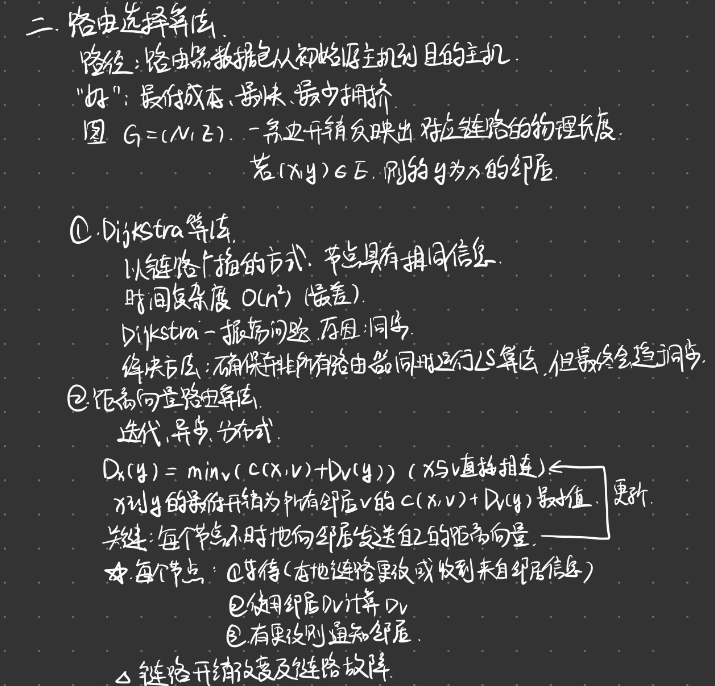 二. 路由选择算法.
路径:路由器数据包从初始源主机到目的主机.
"好":最低成本、最快、最少拥挤
图 G=(N,E). 一条边开销反映出对应链路的物理长度.
若(x,y)∈E. 则称y为x的邻居.
①.Dijkstra算法.
以链路广播的方式. 节点具有相同信息.
时间复杂度 O(n²) (最差).
Dijkstra-振荡问题.原因:同步.
解决方法:确保并非所有路由器同时运行LS算法,但最终会趋于同步.
②.距离向量路由算法.
迭代、异步、分布式.
Dx(y) = minv(c(x,v)+Dv(y)) (x与v直接相连)
x到y的最低开销为所有邻居v的c(x,v)+Dv(y)最小值. 更新.
关键:每个节点不时地向邻居发送自己的距离向量.
☆.每个节点:①等待(本地链路更改或收到来自邻居信息)
②.使用邻居Dv计算Dv
③.有更改则通知邻居.
△链路开销改变及链路故障.